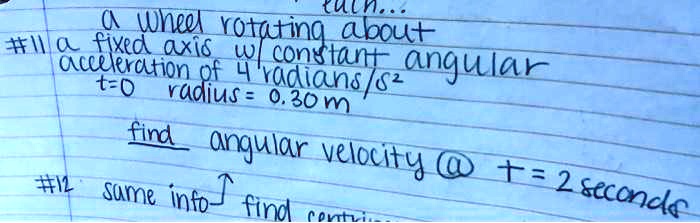 each...
a wheel rotating about
#11 a fixed axis w/ constant angular
acceleration of 4 radians/s²
t=0 radius = 0.30 m
find angular velocity @ t = 2 seconds
#12 same info ↑ find